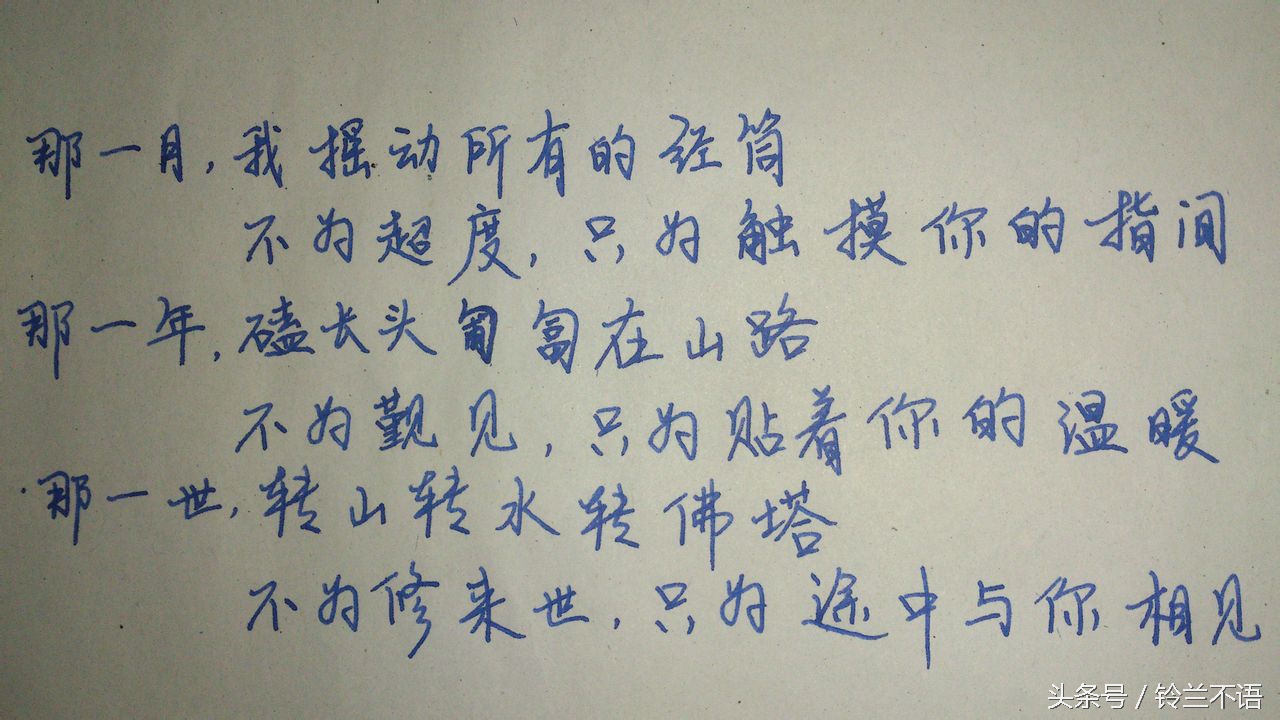 那一月,我摇动所有的经筒
不为超度,只为触摸你的指间
那一年,磕长头匍匐在山路
不为觐见,只为贴着你的温暖
那一世,转山转水转佛塔
不为修来世,只为途中与你相见
头条号 / 铃兰不语